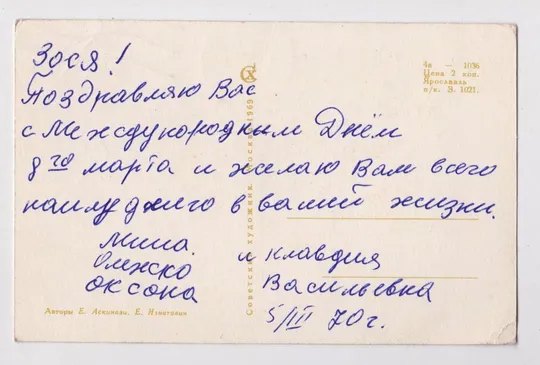 Зося!
Поздравляю Вас
с Международным Днём
8го марта и желаю Вам всего
наилучшего в вашей жизни.
Миша
Олежко
Оксона
и Клавдия
Васильевна
5/III 70 г.
4а — 1036
Цена 2 коп.
Ярославль
п/к. З. 1021.
Советский художник. Москва. 1969 г.
Авторы Е. Аскинази, Е. Игнатович